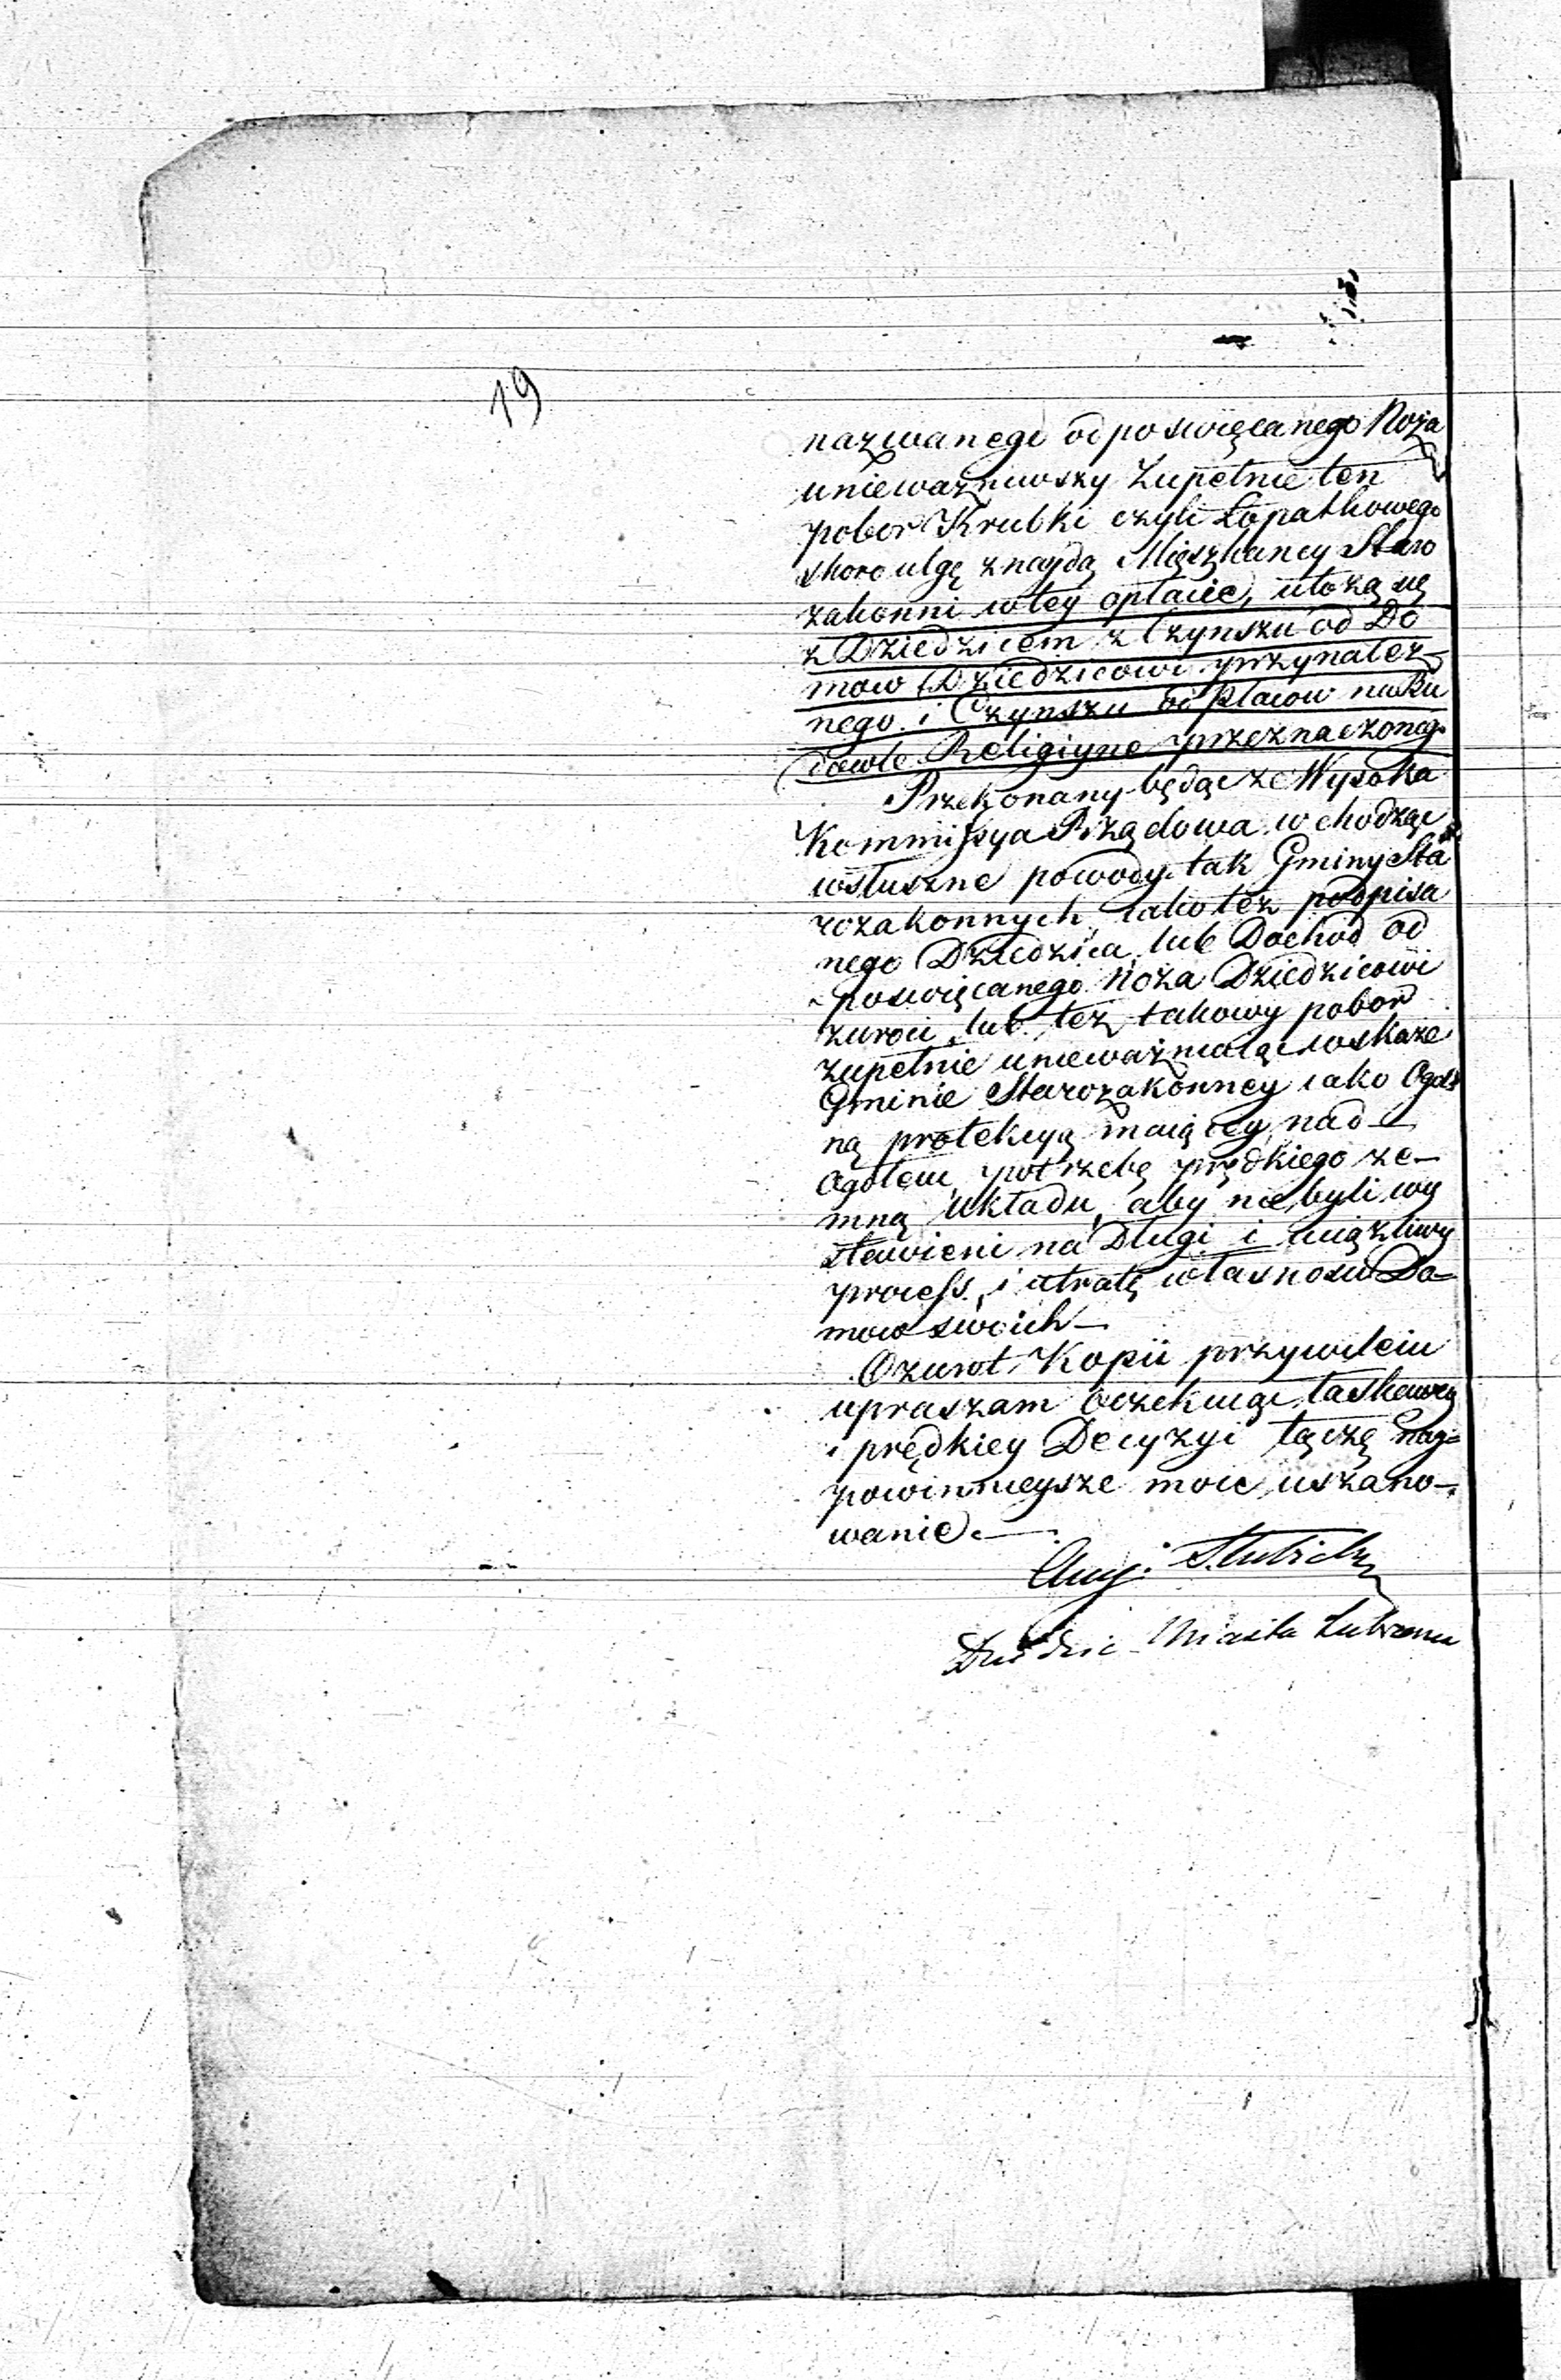 19
nazwanego od poswięcanego Noża
unieważniwszy Zupełnie ten
pobor Krubki czyli Łopatkowego
skoro ulgę znaydą Mięszkancy Staro
zakonni w tey opłacie, ułożą się
z Dziedzicem z Czynszu od Do
mow Dziedzicowi przynależ-
nego i Czynszu od Placow na Bu
dowle Religiyne przeznaczoneg
Przekonany będąc że Wysoka
Kommissya Rządowa wchodząc
w słuszne powody tak Gminy Sta
rozakonnych iako też podpisa
nego Dziedzica, lub Dochod od
poswięcanego Noża Dziedzicowi
zwroci, lub też takowy pobor
zupełnie unieważniaiąc wskaże
Gminie Starozakonney iako Ogol
ną protekcyą maiącey nad
Ogołem potrzebę prędkiego ze-
mną Układu, aby nie byli wy
stawieni na Długi i uciążliwy
process, i utratę własnosci Do=
mow swoich —
O zwrot Kopii przywileiu
upraszam oczekuiąc łaskawey
i prędkiey Decyzyi łączę nay=
powinnieysze moie uszano-
wanie. —
Aug. Słubicki
Dziedzic Miasta Lubranca